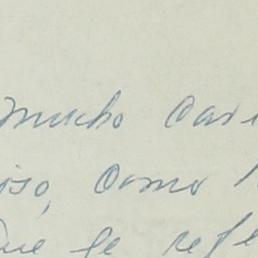 mucho cari
oso, como l
que se refe